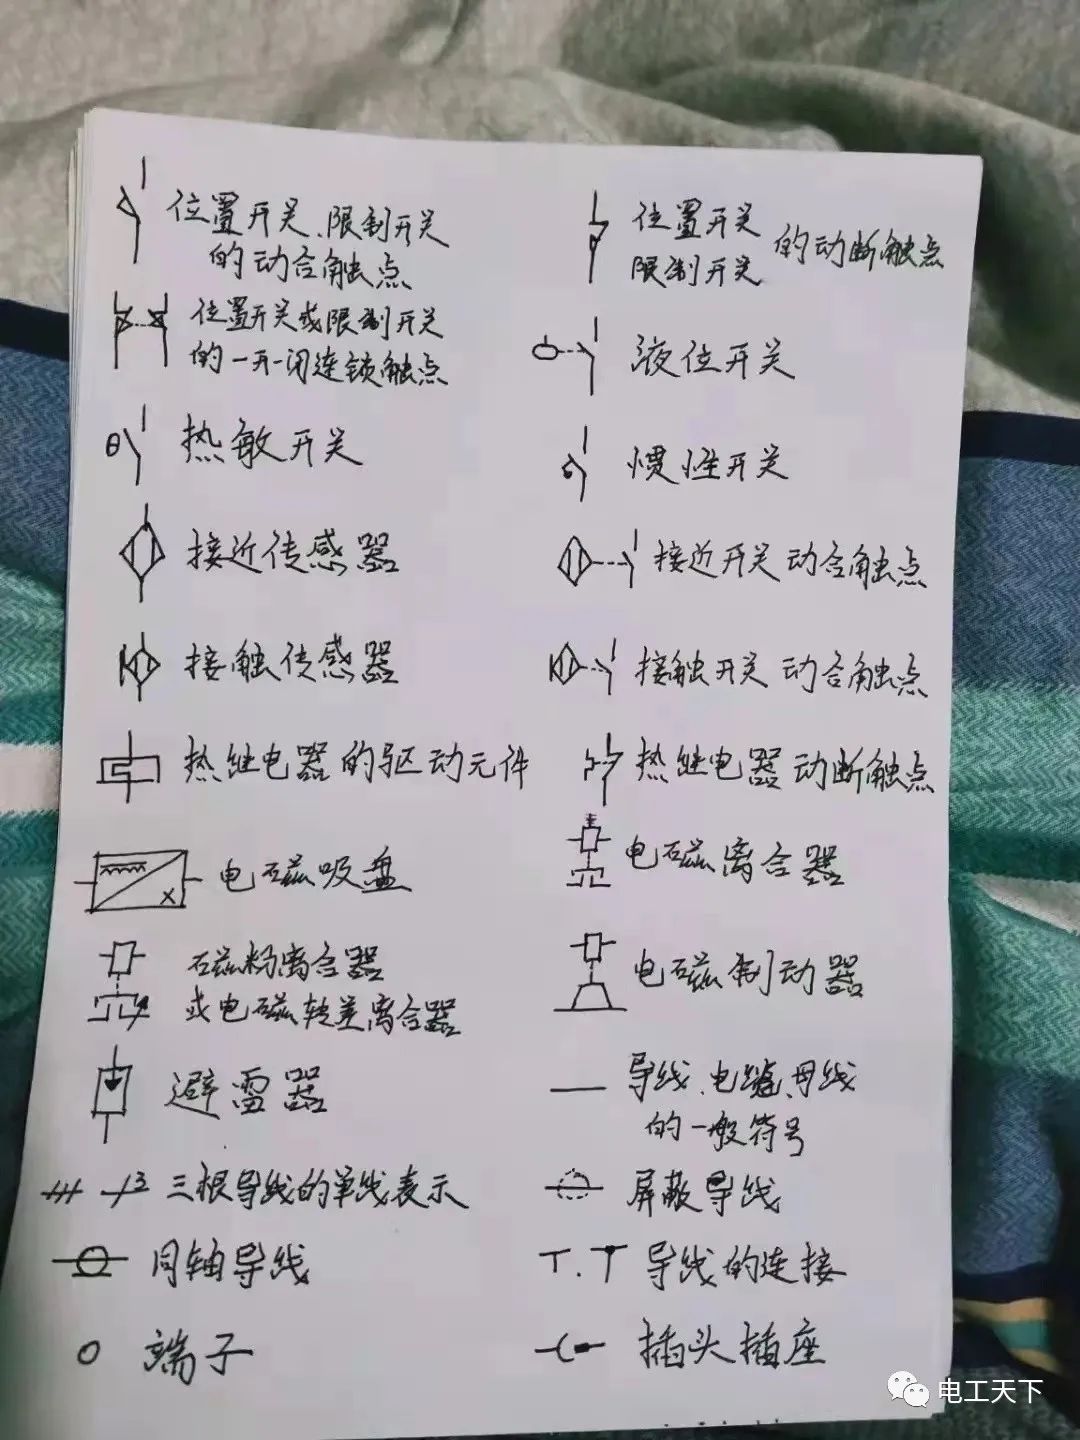 位置开关、限制开关
的动合触点
位置开关
限制开关
的动断触点
位置开关或限制开关
的一开一闭连锁触点
液位开关
θ
热敏开关
惯性开关
接近传感器
接近开关动合触点
接触传感器
接触开关动合触点
热继电器的驱动元件
热继电器动断触点
电磁吸盘
X
电磁离合器
磁粉离合器
或电磁转差离合器
电磁制动器
避雷器
导线、电缆、母线
的一般符号
3
三根导线的单线表示
屏蔽导线
同轴导线
导线的连接
端子
插头插座
电工天下